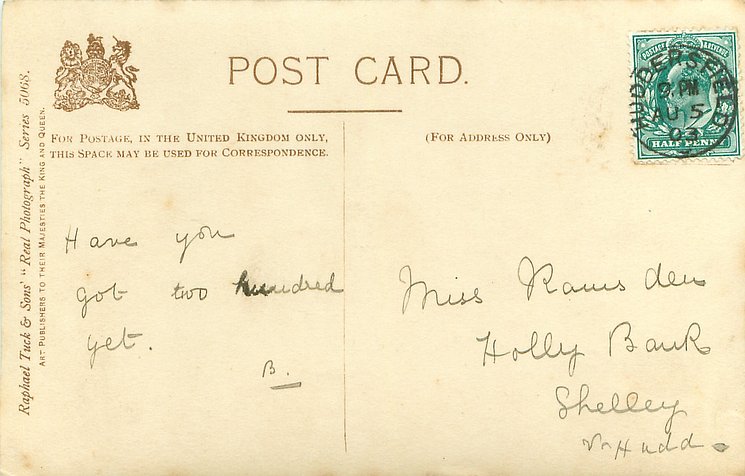 POST CARD.
POSTAGE & REVENUE
HUDDERSFIELD
9. PM
AU 5
03
HALF PENNY
FOR POSTAGE, IN THE UNITED KINGDOM ONLY,
THIS SPACE MAY BE USED FOR CORRESPONDENCE.
(FOR ADDRESS ONLY)
Raphael Tuck & Sons' "Real Photograph" Series 5068.
ART PUBLISHERS TO THEIR MAJESTIES THE KING AND QUEEN.
Have you
got two hundred
yet.
B.
Miss Ramsden
Holly Bank
Shelley
Nr Hudd.